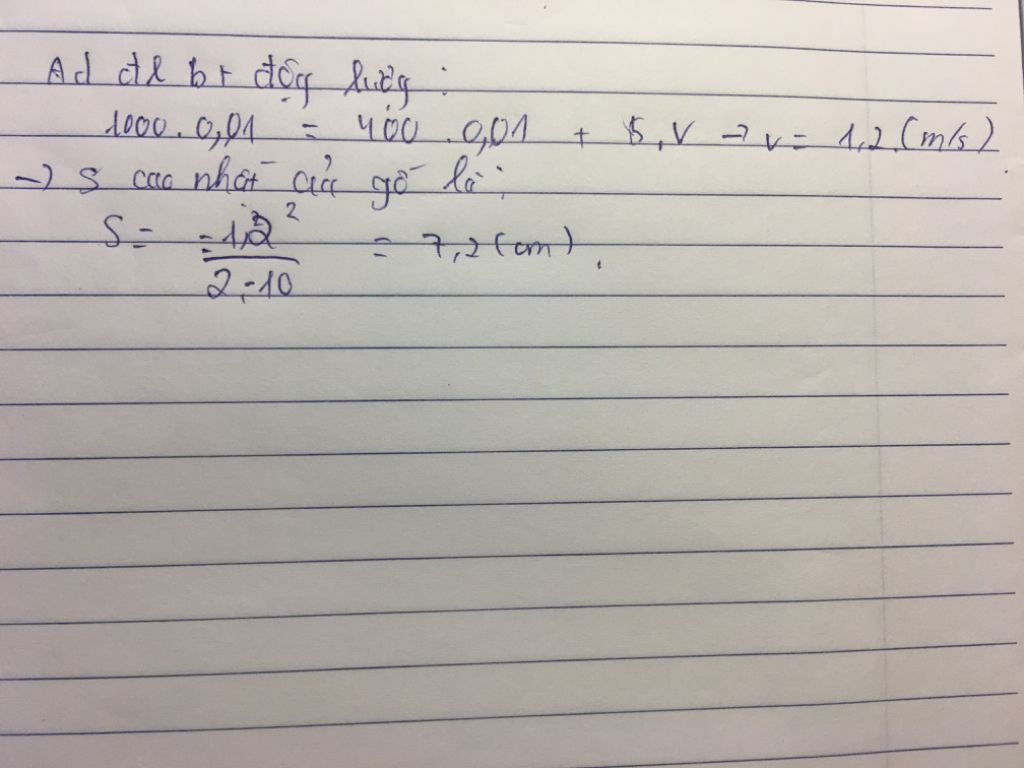 Ad đl bt động lượng :
1000 . 0,01 = 400 . 0,01 + 5 . v → v = 1,2 (m/s)
→ S cao nhất của gỗ là :
S = -1,2² / 2.-10 = 7,2 (cm) .